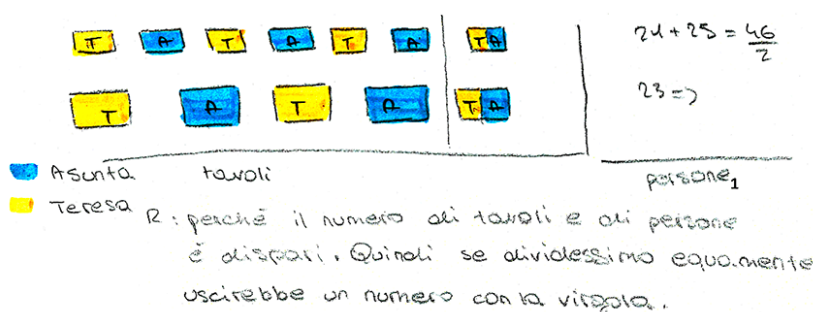 T A T A T A TA
21 + 25 = 46/2
T A T A TA
23 =>
Asunta tavoli persone 1
Teresa R: perché il numero di tavoli e di persone
è dispari. Quindi se dividessimo equamente
uscirebbe un numero con la virgola.